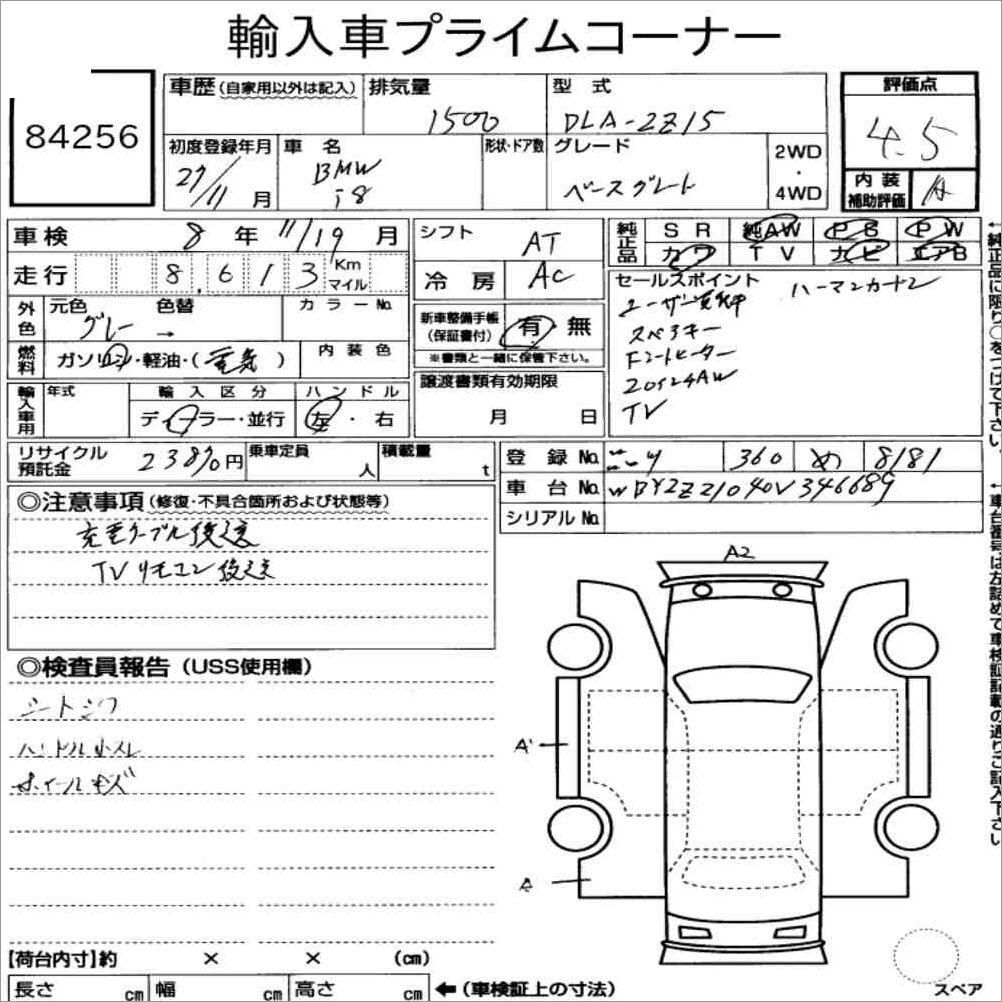 輸入車プライムコーナー
84256
車歴 (自家用以外は記入) 排気量 型式 評価点
1500 DLA-2Z15 4.5
初度登録年月 車名 形状・ドア数 グレード 2WD・4WD
27/11月 BMW i8 ベースグレード
内装補助評価 A
車検 8年 11/19月
走行 8,613 Km マイル
シフト AT
冷房 AC
純正品 SR 純AW PS PW
カワ TV ナビ エアB
外色 元色 色替 カラーNo.
グレー →
燃料 ガソリン・軽油・(電気) 内装色
新車整備手帳(保証書付) 有 無
※書類と一緒に保管下さい。
セールスポイント
ハーマンカードン
ユーザー買取車
スペアキー
フロントヒーター
20インチAW
TV
輸入車用 年式 輸入区分 ハンドル
ディーラー・並行 左・右
譲渡書類有効期限
月 日
リサイクル預託金 23870円 乗車定員 人 積載量 t
登録No. 360 め 8181
車台No. WBY2Z21040V346689
シリアルNo.
◎注意事項 (修復・不具合箇所および状態等)
充電ケーブル後送
TVリモコン後送
◎検査員報告 (USS使用欄)
シートシワ
ハンドル小スレ
ホイールキズ
A2
A
A
【荷台内寸】約 × × (cm)
長さ cm 幅 cm 高さ cm ←(車検証上の寸法)
スペア
←純正品に限り○をつけて下さい。
←車台番号は左詰めで車検証記載の通りご記入下さい